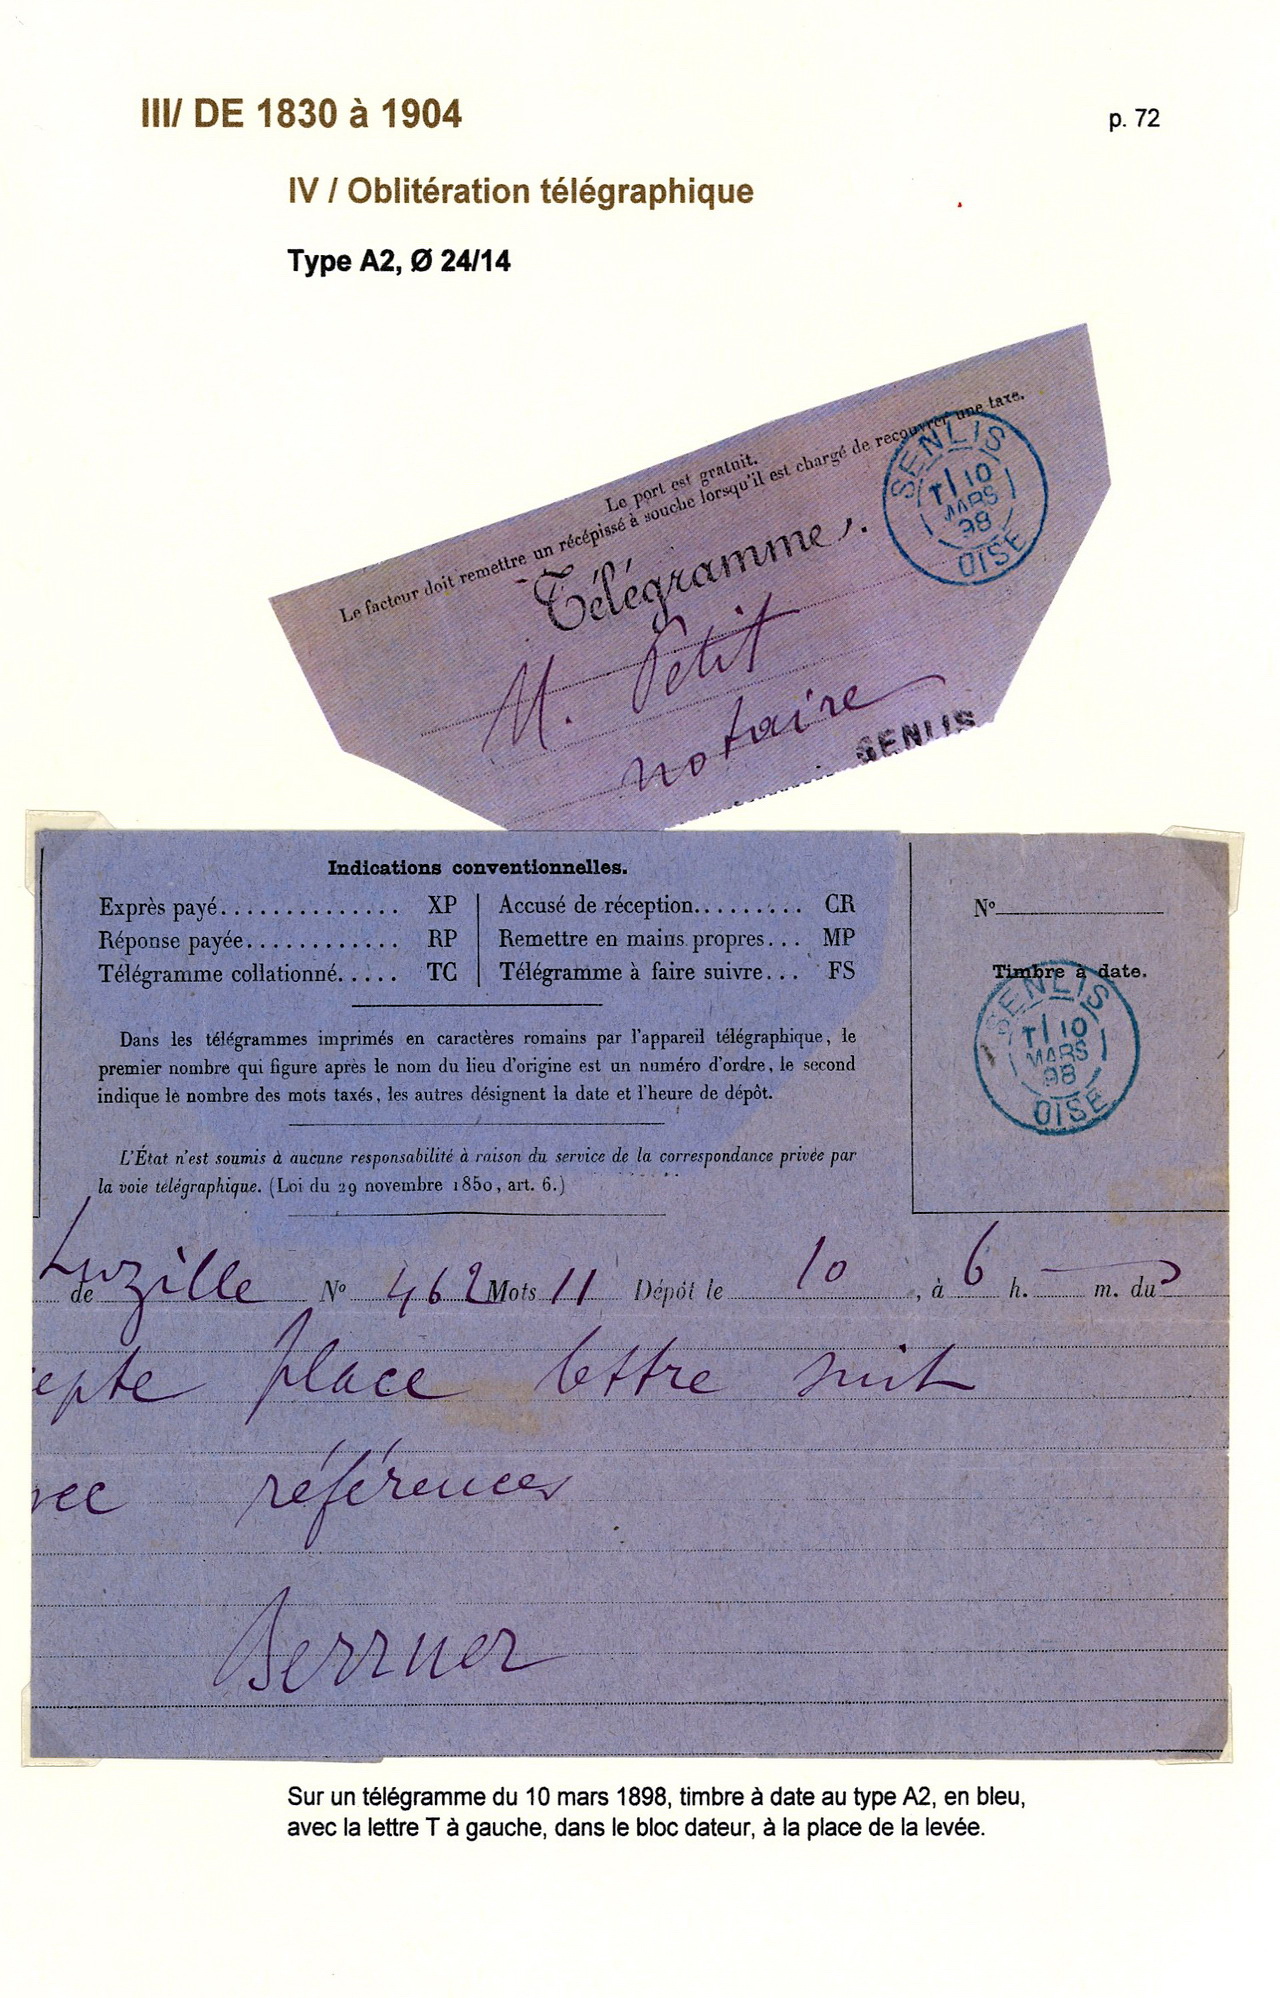 III/ DE 1830 à 1904
p. 72
IV / Oblitération télégraphique
Type A2, Ø 24/14
Le port est gratuit.
Le facteur doit remettre un récépissé à souche lorsqu'il est chargé de recouvrer une taxe.
Télégramme.
SENLIS
T 10
MARS
98
OISE
M. Petit
notaire
SENLIS
Indications conventionnelles.
Exprès payé.............. XP
Réponse payée............ RP
Télégramme collationné..... TC
Accusé de réception......... CR
Remettre en mains propres... MP
Télégramme à faire suivre... FS
Dans les télégrammes imprimés en caractères romains par l'appareil télégraphique, le
premier nombre qui figure après le nom du lieu d'origine est un numéro d'ordre, le second
indique le nombre des mots taxés, les autres désignent la date et l'heure de dépôt.
L'État n'est soumis à aucune responsabilité à raison du service de la correspondance privée par
la voie télégraphique. (Loi du 29 novembre 1850, art. 6.)
Nº
Timbre à date.
SENLIS
T 10
MARS
98
OISE
de Luzille Nº 462 Mots 11 Dépôt le 10, à 6 h. m. du
epte place lettre suit
vec références